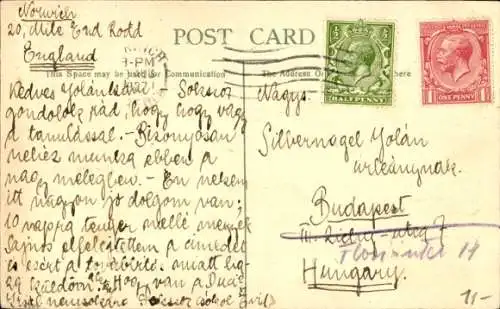 Norwich
20, Mile End Road
England
POST CARD
3-PM
This Space may be used for Communication
The Address Only here
HALFPENNY
ONE PENNY
Kedves Jolánka! – Sokszor
gondolok rád, hogy hogy vagy
a tanulással. – Bizonyosan
nehéz munka ebben a
nagy melegben. – Én nekem
itt nagyon jó dolgom van;
10 napra tenger mellé megyek
Sajnos elfelejtettem a címedet
és ezért a továbbító miatt
küldöm. Hogy van a Duci
Nagys.
Silbernagel Jolán
úrleánynak.
Budapest
III. Zichy-utca 7
Hungary.